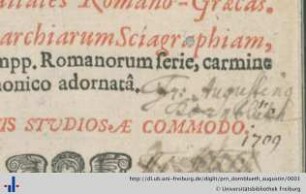 itates Romano-Græcas.
archiarum Sciagraphiam,
mpp. Romanorum serie, carmine
nonico adornatâ.
Fr: Augustino
IS STUDIOSÆ COMMODO.
1709
http://dl.ub.uni-freiburg.de/diglit/prn_dornblueth_augustin/0001
© Universitätsbibliothek Freiburg